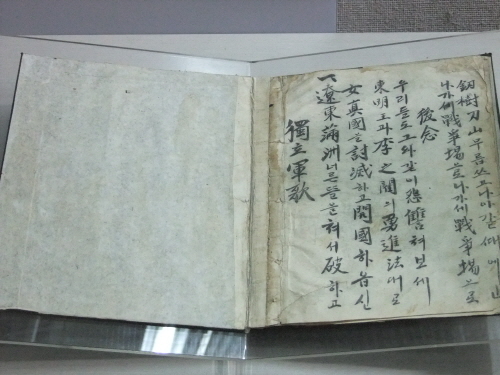 獨立軍歌
一 遼東滿洲너른뜰을쳐서破하고
女真國을討滅하고開國하옵신
東明王과李之蘭의勇進法대로
우리들도그와같이怨讐쳐보세
後念
나가세戰爭場으로나가세戰爭場으로
釰樹刀山무릅쓰고나아갈때에